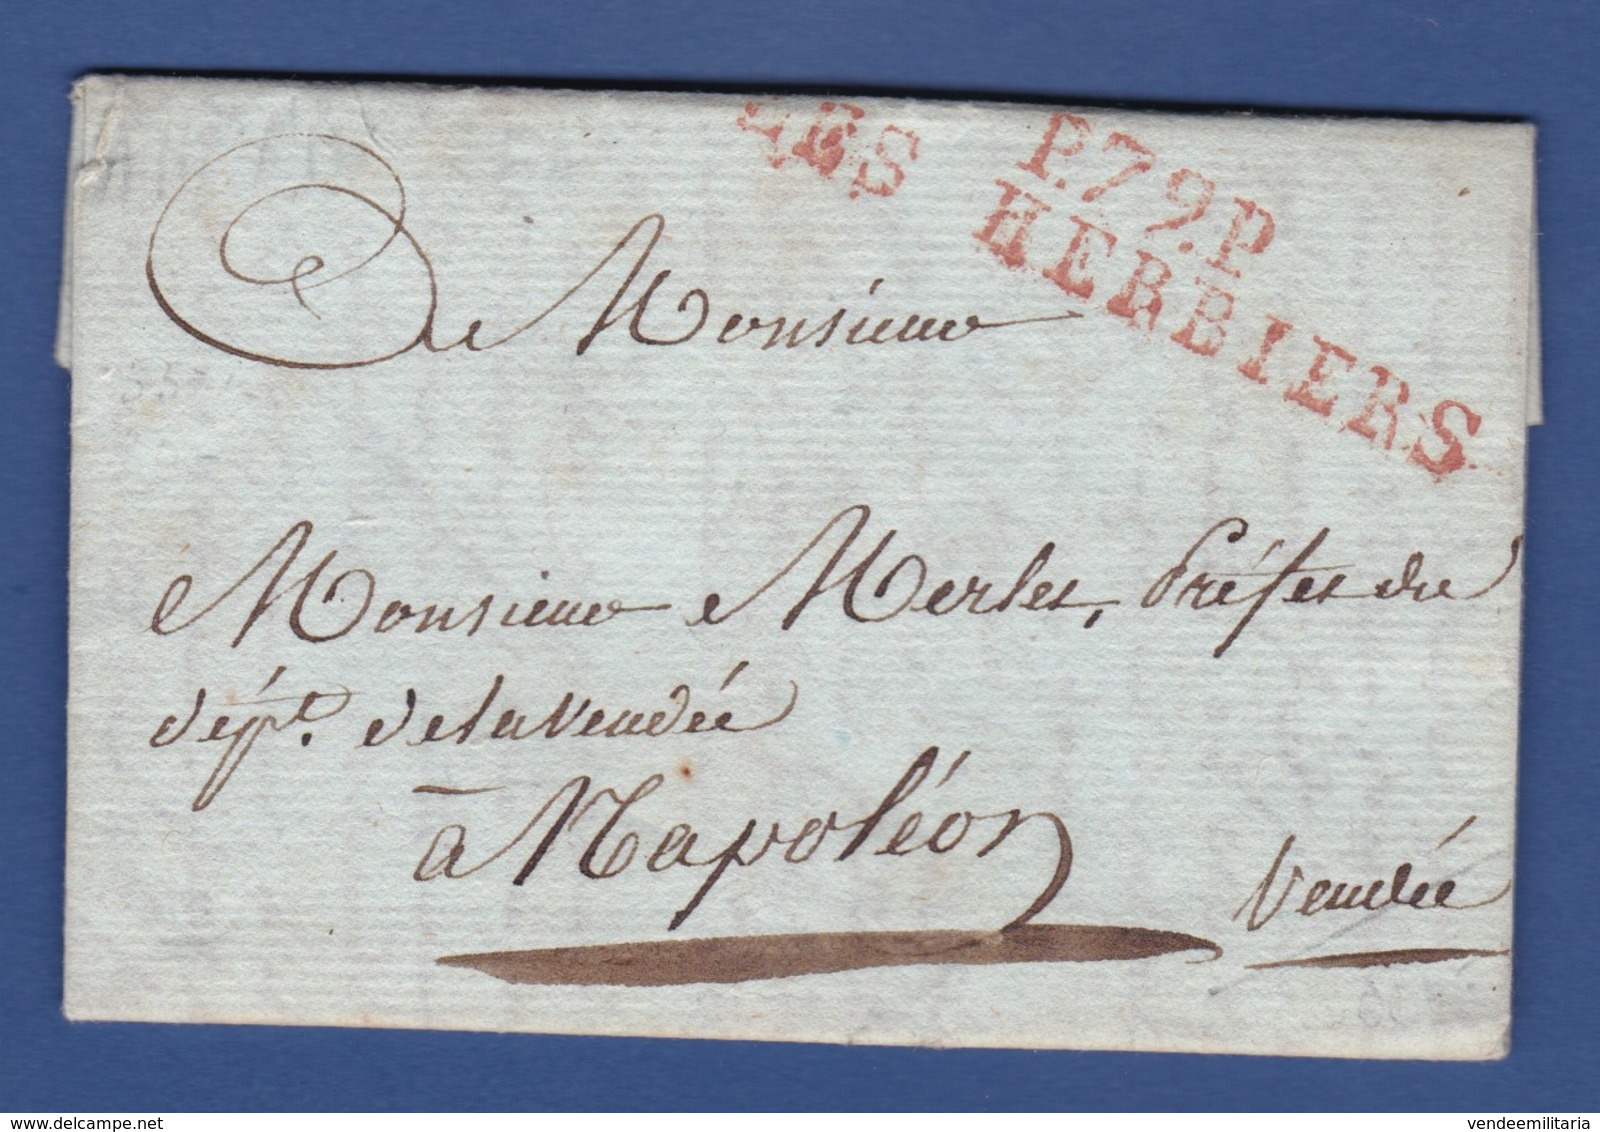 P.79.P
LES HERBIERS
A Monsieur
Monsieur Merlet, Préfet du
dépt. de la vendée
à Napoléon
Vendée
delcampe.net
vendeemilitaria